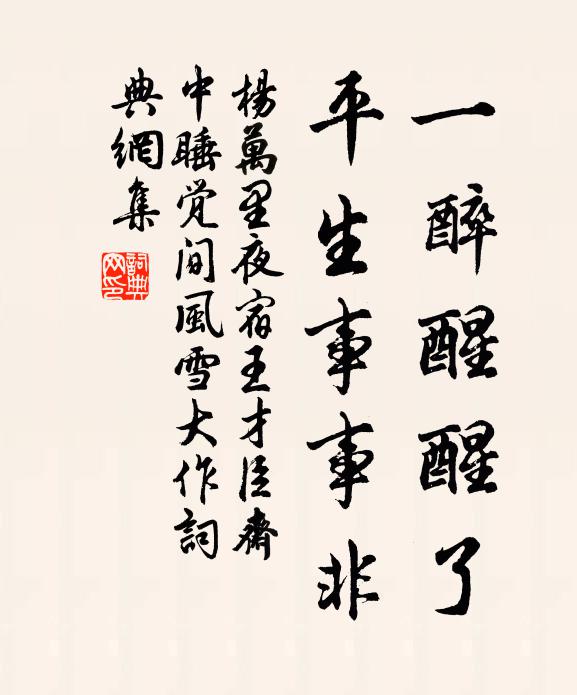 一醉醒醒了
平生事事非
楊萬里夜宿王才臣齋
中睡觉间風雪大作詞
典網集
詞典
网印